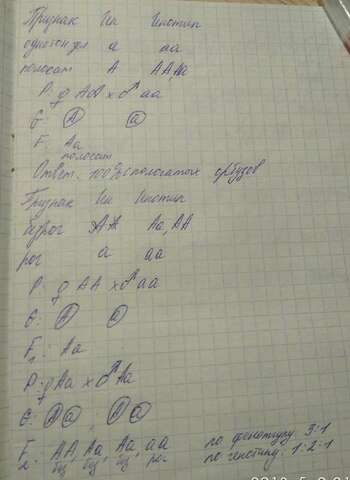 Признак Ген Генотип
однотон а аа
полосат А АА, Аа
P: ♀ АА x ♂ аа
G: А а
F: Аа
полосат
Ответ: 100% полосатых арбузов
Признак Ген Генотип
безрог А Аа, АА
рог а аа
P: ♀ АА x ♂ аа
G: А а
F1: Аа
P: ♀ Аа x ♂ Аа
G: А а А а
F2: АА, Аа, Аа, аа по фенотипу 3:1
рог. по генотипу: 1:2:1